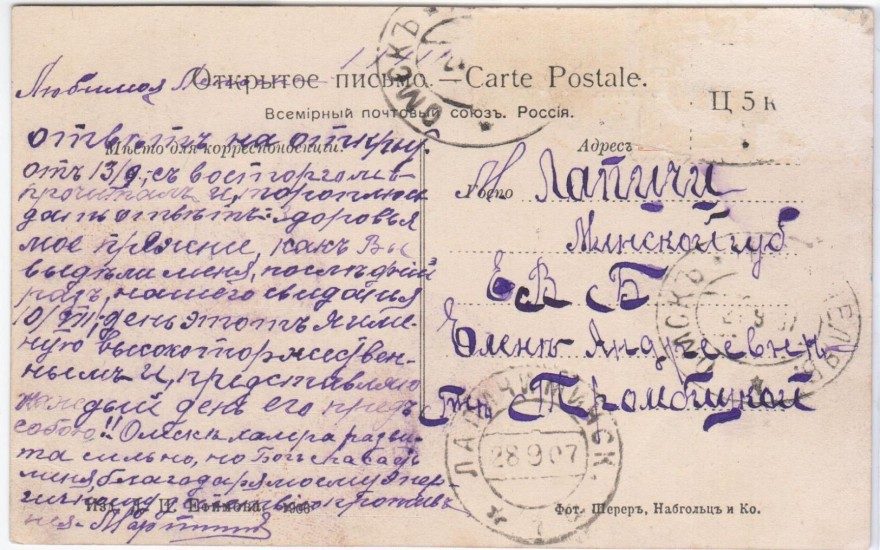 Открытое письмо. — Carte Postale.
Всемірный почтовый союзъ. Россія.
Любимая
Мѣсто для корреспонденціи.
отвѣтъ на откры.
отъ 13/9, съ восторгомъ
прочиталъ и, тороплюсь
дать отвѣтъ: здоровья
мое прежнее, какъ Вы
видѣли меня, послѣдній
разъ, нашего свиданья
10/VIII, день этотъ я име-
ную высокоторжествен-
нымъ и, представляю
каждый день его предъ
собою!! Омскъ холера разви-
та сильно, но Богъ спасаетъ
меня, благодаря моему энер-
гичному противъ
нея.
Изд. А. П. Ефимова. 1906
Ц 5 к
Адресъ
М. Лапичи
Минской губ
Е В Б
Еленѣ Андреевнѣ
Тромбицкой
ОМСКЪ
ОМСКЪ
ЛАПИЧИ МИНСК.
28 9 07
Фот. Шереръ, Набгольцъ и Ко.